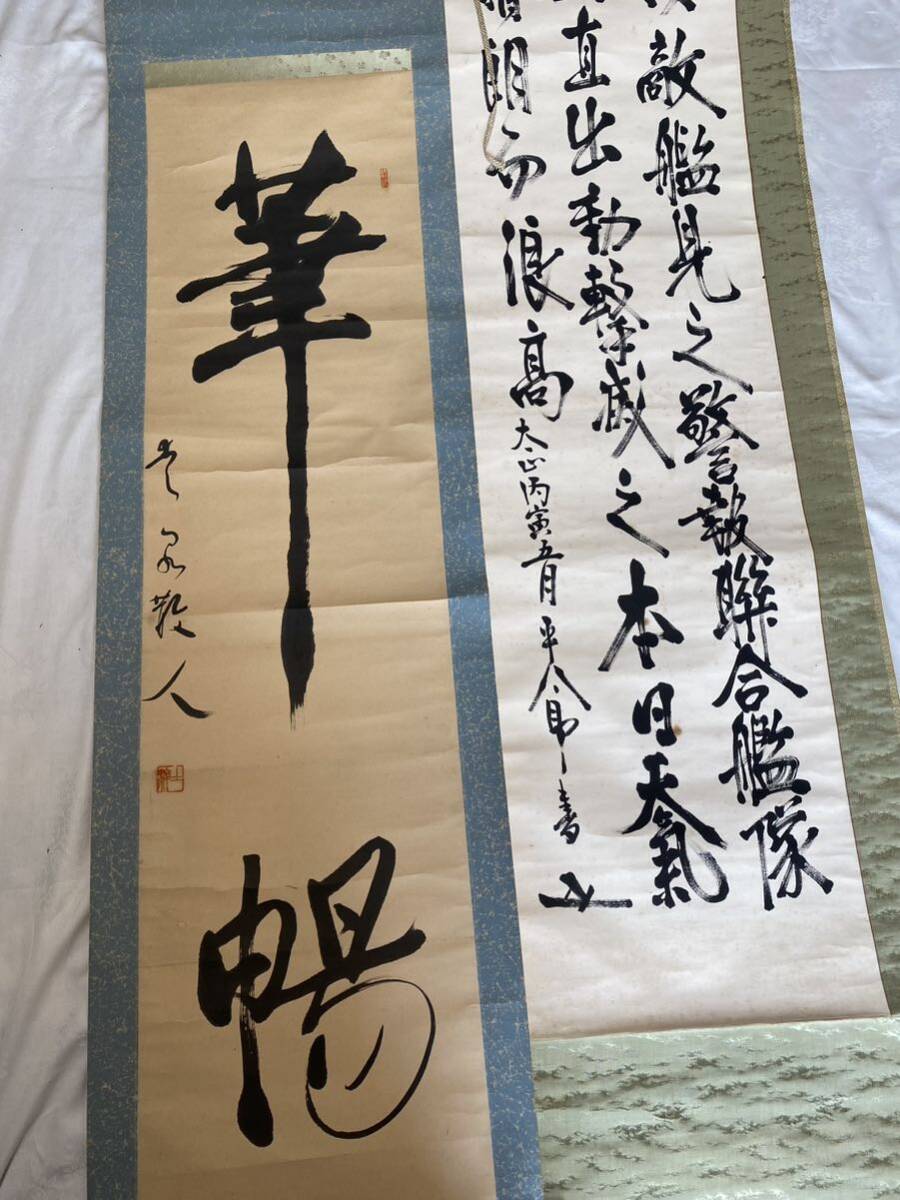 敵艦見之警報聯合艦隊
直出動撃滅之本日天氣
晴朗而浪高
大正丙寅五月 平八郎書
筆暢
散人